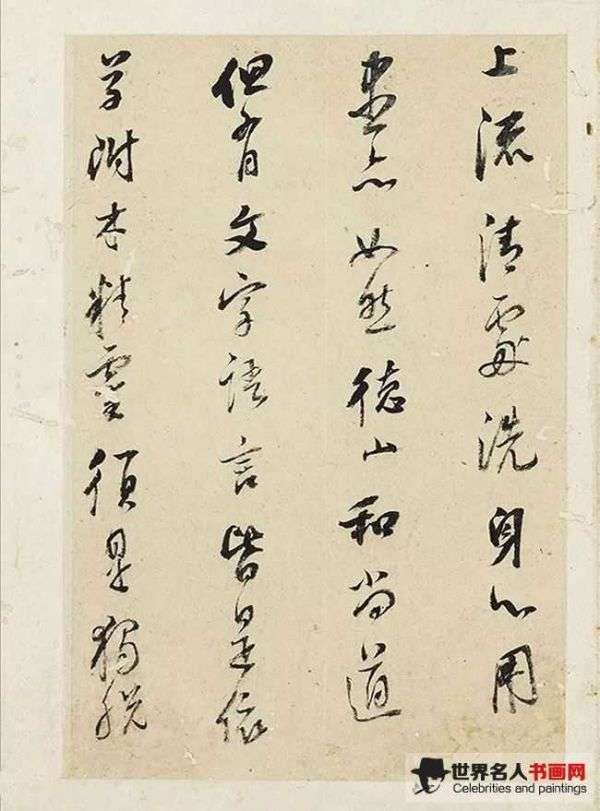 上流清處洗身心用
亦如然德山和尚道
但有文字語言皆是依
草附木精靈須是獨脫
世界名人书画网
Celebrities and paintings